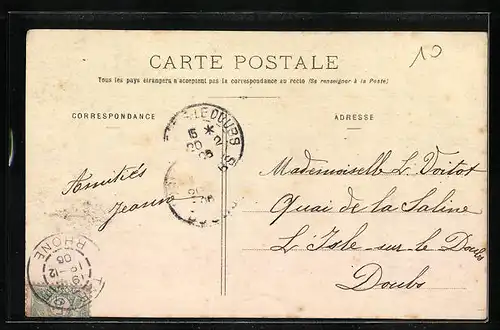 10
CARTE POSTALE
Tous les pays étrangers n'acceptent pas la correspondance au recto (Se renseigner à la Poste)
CORRESPONDANCE
ADRESSE
LE DOUBS
15 *
20 2
05
Amitiés
Jeanne
Mademoiselle L. Voitot
Quai de la Saline
L'Isle-sur-le Doubs
Doubs
RHONE
18-12
05